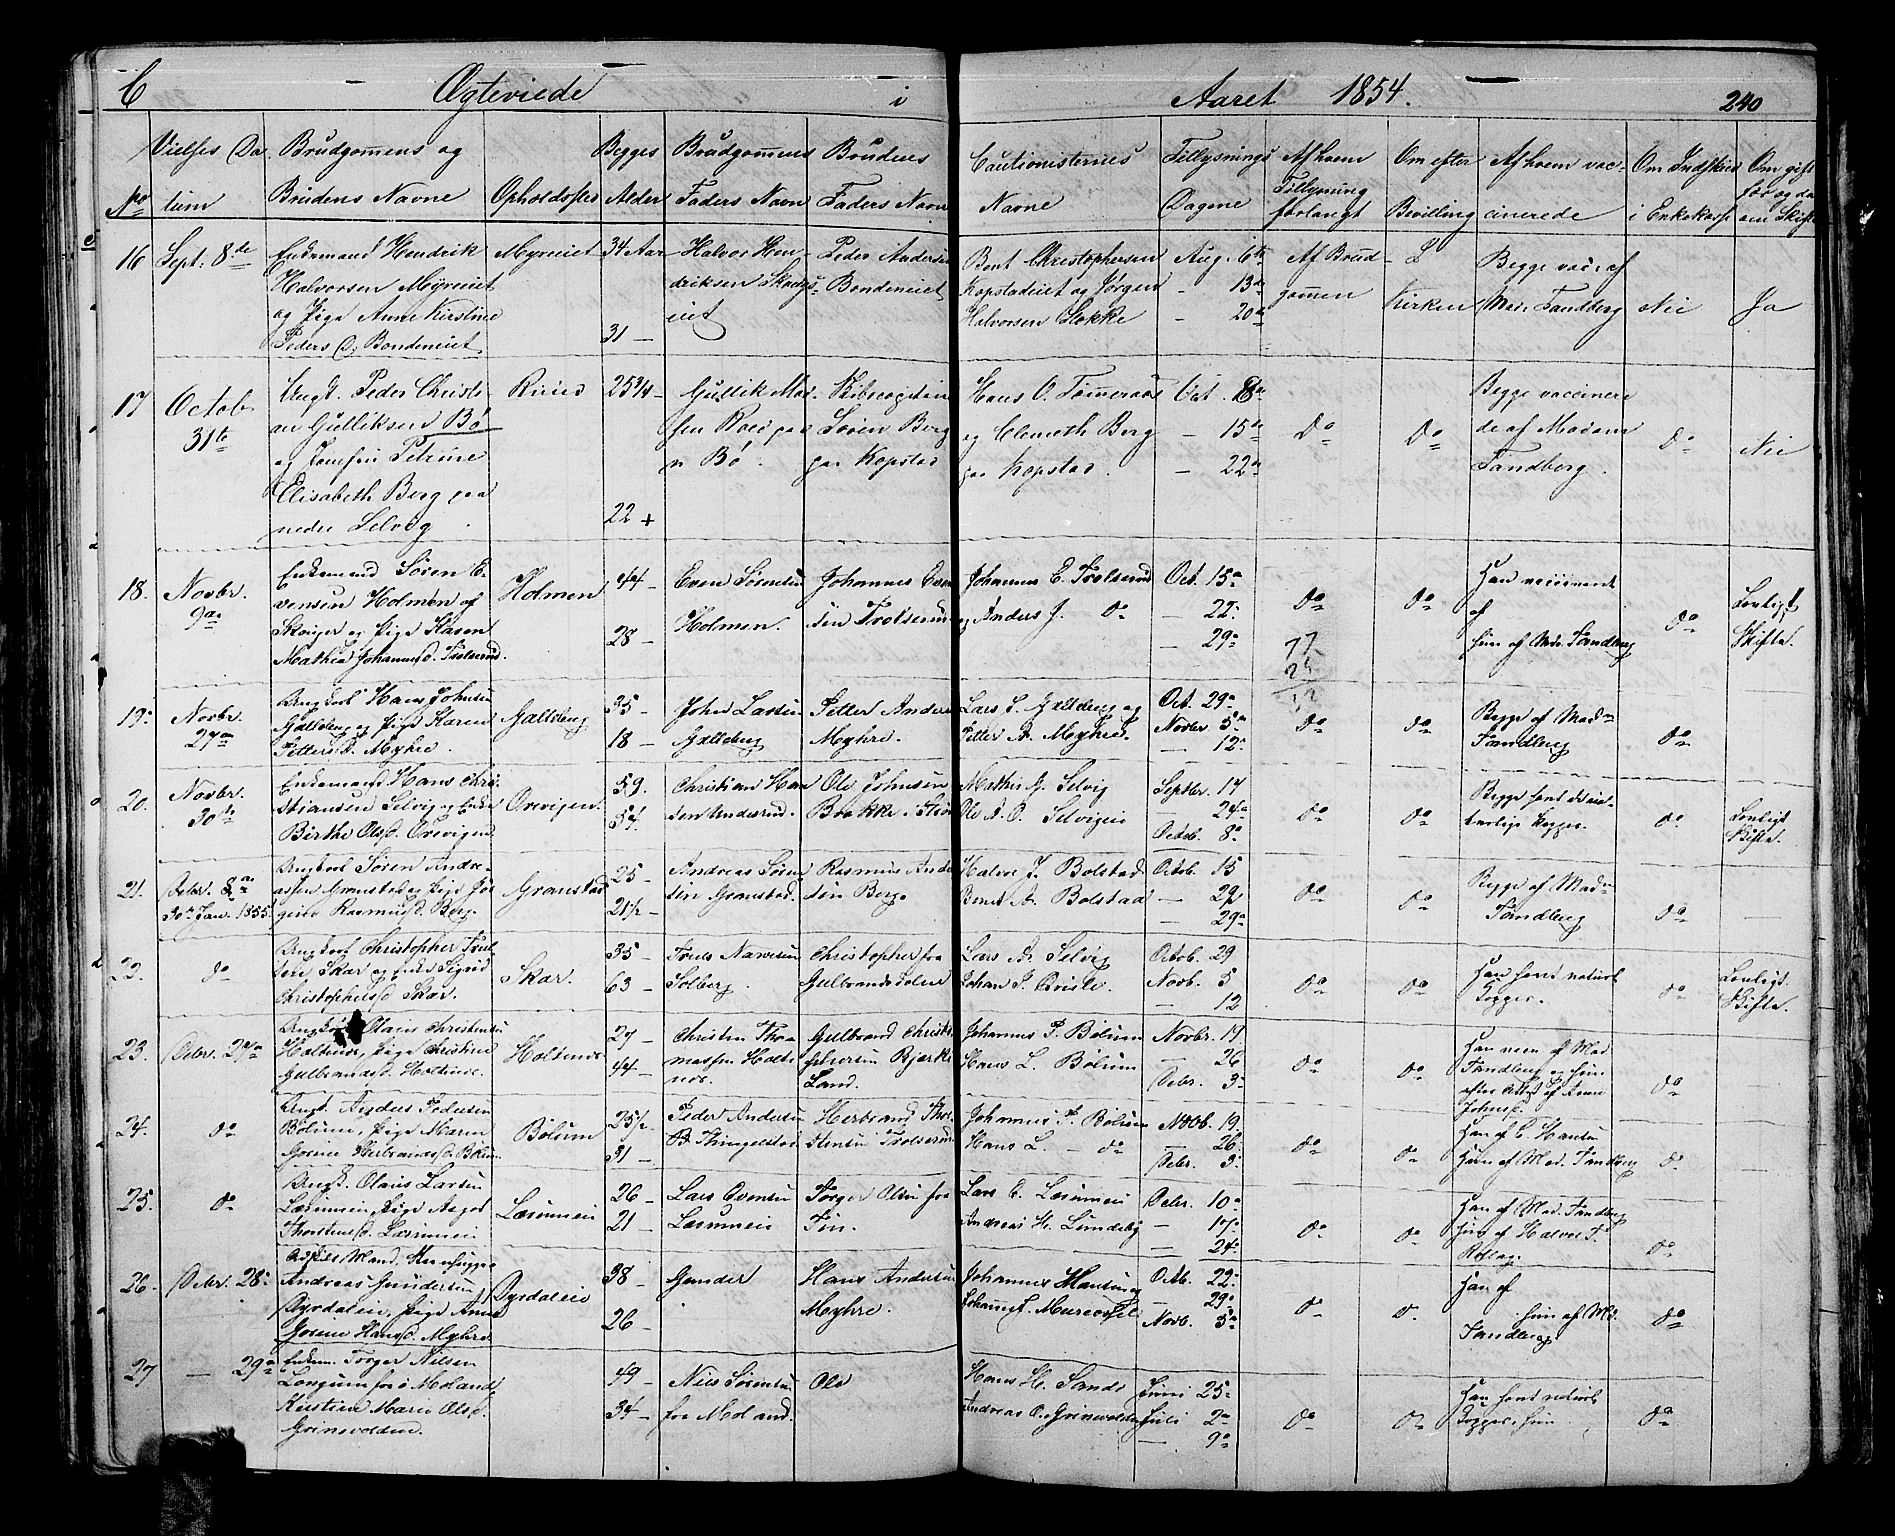 C Ægteviede i Aaret 1854. 240
No Vielses Datum Brudgomens og Brudens Navne Opholdssted Begges Alder Brudgomens Faders Navn Brudens Faders Navn Cautionisternes Navne Tillysnings Dagene Af hvem Tillysning forlangt Om efter Bevilling Af hvem vaccinerede Om Indskud i Enkekasse Om gift før og da om Skifte
16 Sept: 8de
Enkemand Hendrik
Halvorsen Myreiet
og Pige Anne Kirstine
Peders D. Bondeneiet
Myreiet
34 Aar
31 —
Halvor Hen-
driksen Skougs-
eiet
Peder Anders
Bondeneiet
Bent Christophersen
Kopstadeiet og Jørgen
Halvorsen Slokke
Aug. 6te
— 13de
— 20de
Af Brud-
gomen
I
Kirken
Begge vacc. af
Mad. Tandberg
Nei
Ja
17 Octob. 31te
Ungk. Peder Christi-
an Gulliksen Bø
og Jomfru Petrine
Elisabeth Berg paa
nedre Selvig
25 3/4 —
22 +
Gullik
Bø.
Søren Berg
paa Kopstad
Hans O. Tømeraas
og Clemeth Berg
paa Kopstad.
Oct. 8de
— 15de
— 22de
Do
Do
Begge vaccinere
de af Madam
Tandberg.
Do
Nei
18. Novbr. 9de
Enkemand Søren E-
vensen Holmen af
Skoger og Pige Karen
Mathea Johannesd. Trolserud.
Holmen
44 —
28 —
Even Sørensen
Holmen.
Johannes Even
sen Trolserud
Johannes E. Trolserud
og Anders J. do
Oct. 15de
— 22.
— 29de
do
do
Han vaccinerede
af
Hun af Mad. Tandberg
do
Lovligt
Skifte.
19. Novbr. 27de
Ungkarl Hans Johnsen
Galleberg og Pige Karen
Pettersd. Myhre.
Galleberg
35 —
18 —
John Larsen
Galleberg
Petter Anders
Myhre.
Lars J. Galleberg og
Petter A. Myhre.
Oct. 29de
Novber 5te
— 12te
do
do
Begge af Madm
Tandberg
do
20. Novbr. 30te
Enkemand Hans Chri-
stiansen Selvig og Enke
Birthe Olsd. Orevigen
Orevigen.
59.
54.
Christian Han
sen Underrud.
Ole Johnsen
Brække i Skou
Mathis G. Selvig
Ole A. O. Selvigen
Septbr. 17
— 24de
Octob. 8de
do
do
Begge havt de na-
turlige Kopper.
do
Lovligt
Skifte.
21. Debr. 8de
30te Jan. 1855.
Ungkarl Søren Andre-
assen Granstad og Pige Jør
gine Rasmusd. Berg.
Granstad
25 —
21 1/2 —
Andreas Sørens
sen Granstad.
Rasmus Ander
sen Berg.
Halvor J. Bolstad
Bernt A. Bolstad
Octob. 15
— 22
— 29de
do
do
Begge af Madm
Tandberg
do
22. do
Ungkarl Christopher Truls
sen Skar og Enke Sigrid
Christophersd. Skar.
Skar.
35 —
63 —
Truls Narvesen
Solberg.
Christopher fra
Gulbrandsdalen
Lars A. Selvig
Johan J.
Octob. 29
Novb. 5
— 12
do
do
Han havt naturl.
Kopper.
do
Lovligt
Skifte.
23. Debr. 27de
Ungkarl Olaus Christensen
Holtenes, Pige Christine
Gulbrandsd. Holtenes.
Holtenes
27 —
44 —
Christen Tho
massen Holte
nes.
Gulbrand Christo
phersen Bjerke
Land.
Johannes P. Bølum
Hans L. Bølum
Novbr. 19
— 26
Debr. 3.
do
do
Han vacc. af Mad.
Tandberg og hun
efter Attest af Anne
Johnsd.
do
24. do
Ungk. Anders Pedersen
Bølum, Pige Maren
Gorine Herbrandsd. Bølum
Bølum
25 1/2 —
31 —
Peder Andersen
Ø. Thingelstad
Herbrand Thor
stensen Trolserud
Johannes P. Bølum
Hans L. — do
Novb. 19.
— 26
Debr. 3.
do
do
Han af C. Hansen
Hun af Mad. Tandberg
do
25. do
Ungk. Olaus Larsen
Læsumeie, Pige Aagot
Thorstensd. Læsumeie.
Læsumeie
26 —
21 —
Lars Evensen
Læsumeie
Torger Olsen fra
Tin.
Lars E. Læsumeie
Andreas H. Lundeby
Debr. 10de
— 17de
— 24de
do
do
Han af Mad. Tandberg
hun af Halvor T.
Rollag.
do
26. Debr. 28de
Andreas Gundersen
Dyrdaleie, Pige Anne
Gorine Hansd. Myhre
Dyrdaleie
38 —
26 —
Gunder
Hans Andersen
Myhre.
Johannes Hansen og
Octb. 22de
— 29de
Novb. 5te
do
do
Han af
Hun af Md.
Tandberg
do
27 — 29de
Enkem. Torger Nilsen
Longum fra ø. Moland,
Kirstine Marie Olsd.
Grinevolden.
49 —
34 —
Niels Sørensen
fra Moland.
Ole
Hans H. Sande
Andreas O. Grinevolden
Juni 25de
Juli 2de
— 9de
do
do
Han havt naturl.
Kopper, hun
do